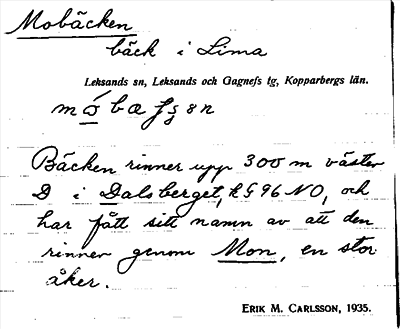 Mobäcken
bäck i Lima
Leksands sn, Leksands och Gagnefs tg, Kopparbergs län.
Bäcken rinner upp 300 m väster
D i Dalsberget, RG 96 NO, och
har fått sitt namn av att den
rinner genom Mon, en stor
åker.
ERIK M. CARLSSON, 1935.